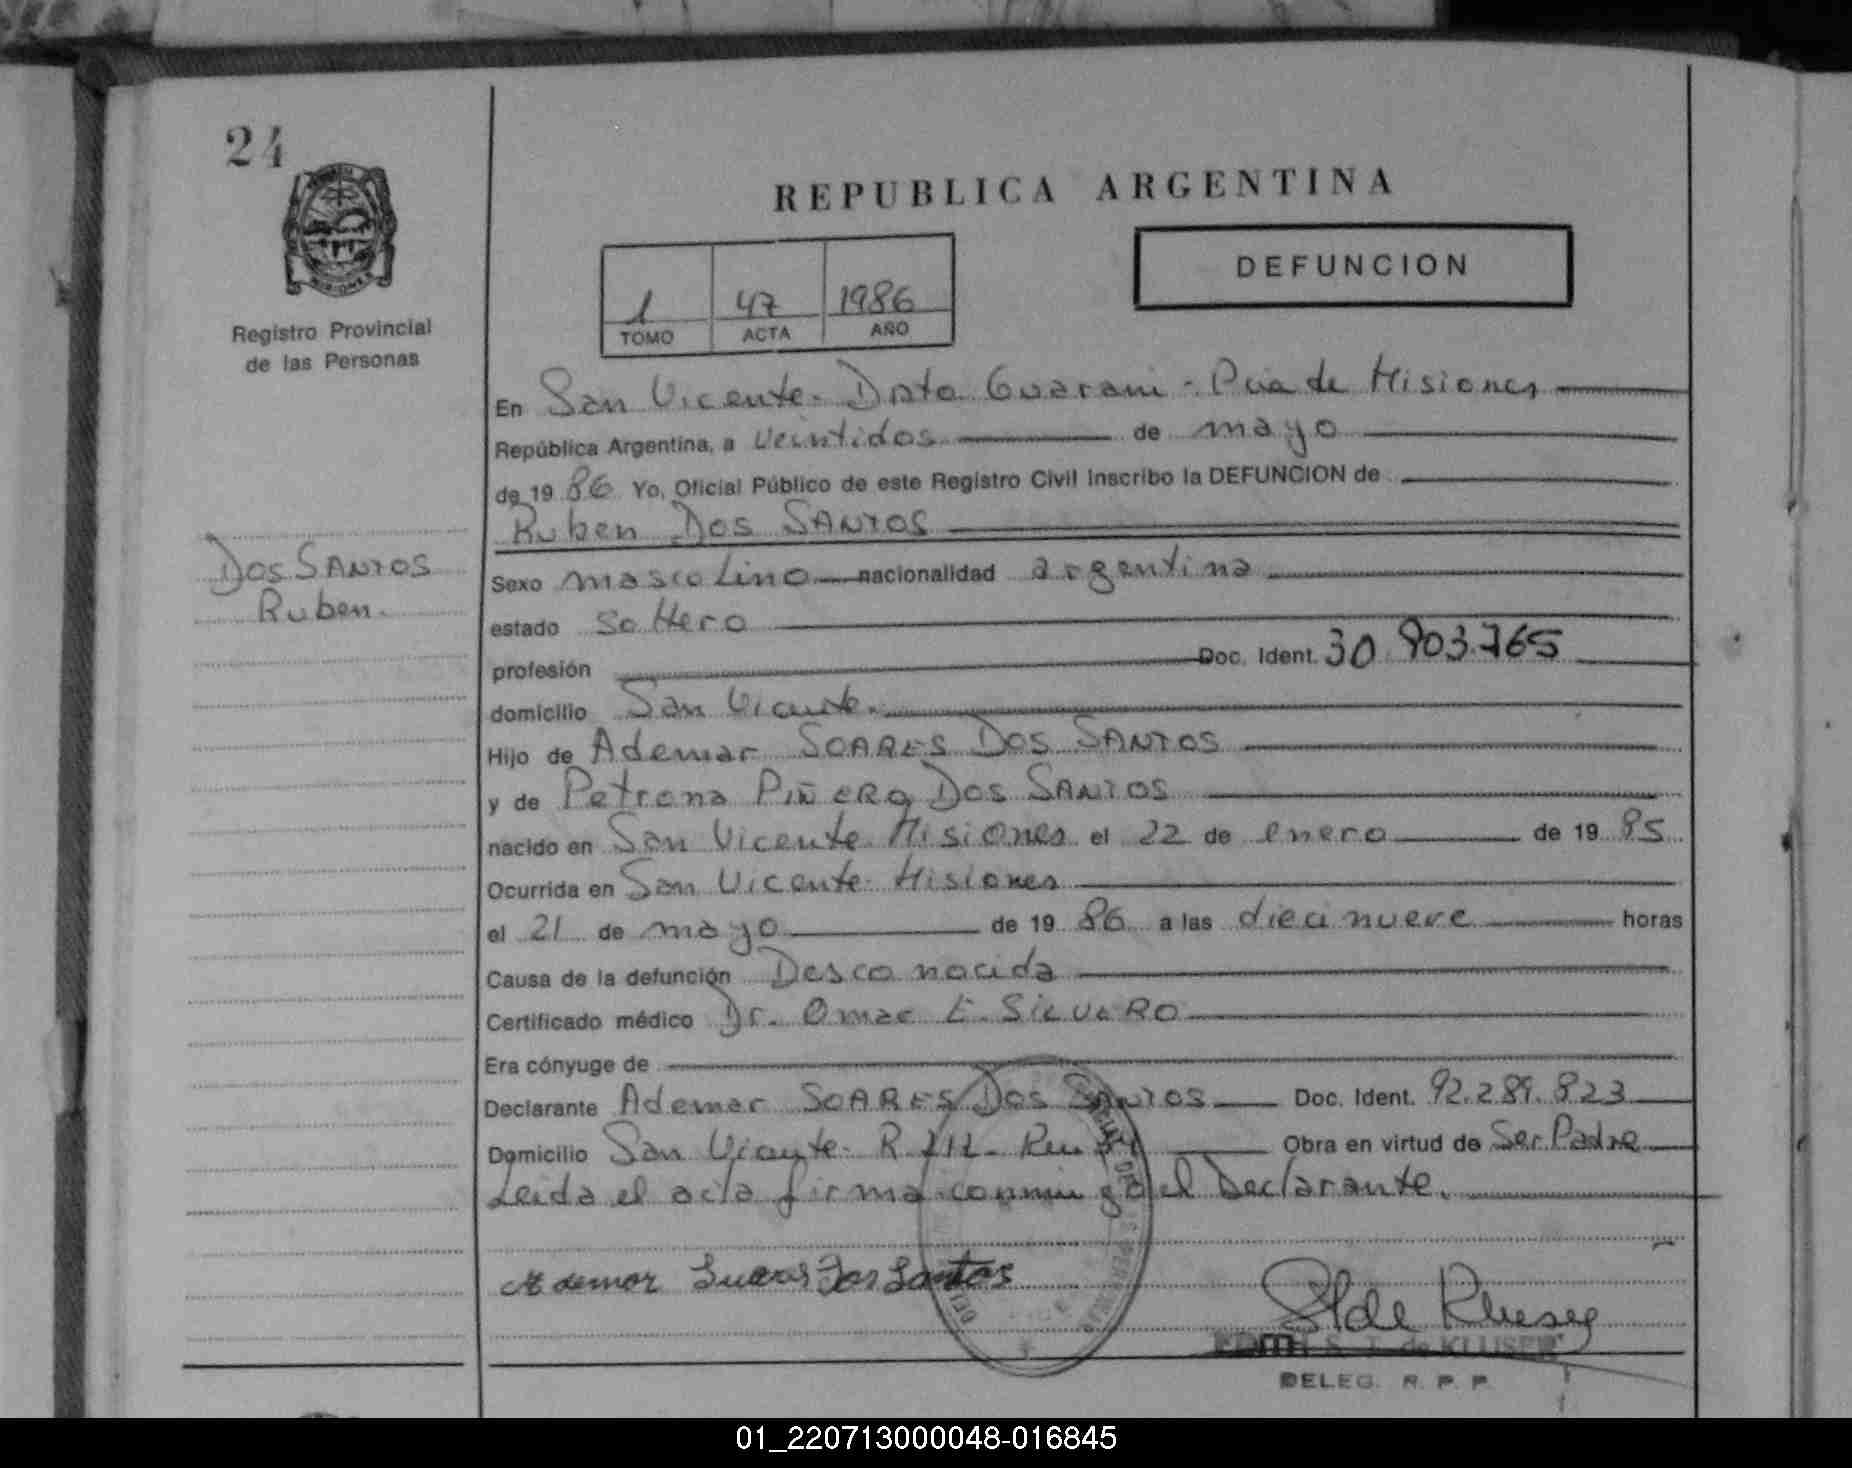 24
REPUBLICA ARGENTINA
DEFUNCION
1 47 1986
TOMO ACTA AÑO
Registro Provincial
de las Personas
MISIONES
En San Vicente. Dpto Guarani - Pcia de Misiones
República Argentina, a veintidos de mayo
de 19 86 Yo, Oficial Público de este Registro Civil inscribo la DEFUNCION de
Ruben Dos SANTOS
Dos SANTOS
Ruben.
Sexo masculino nacionalidad argentina
estado soltero
profesión Doc. Ident. 30.903.765
domicilio San Vicente.
Hijo de Ademar SOARES Dos SANTOS
y de Petrona PIÑERO Dos SANTOS
nacido en San Vicente Misiones el 22 de enero de 19 85
Ocurrida en San Vicente Misiones
el 21 de mayo de 19 86 a las diecinueve horas
Causa de la defunción Desconocida
Certificado médico Dr. Omar E. SILVERO
Era cónyuge de
Declarante Ademar SOARES Dos SANTOS Doc. Ident. 92.289.823
Domicilio San Vicente. Obra en virtud de Ser Padre
Leida el acta firma conmigo el Declarante.
Ademar Dos Santos
DELEG. R. P. P.
01_220713000048-016845